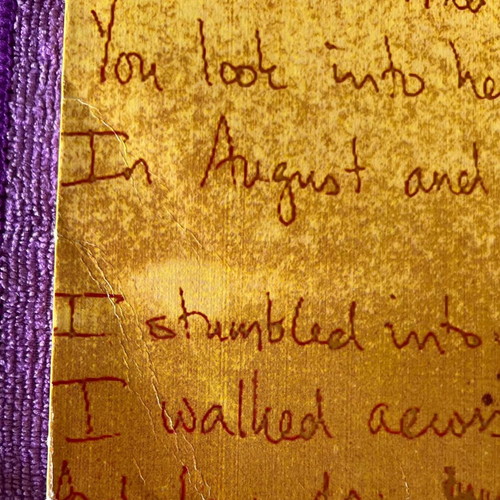 You look into he
In August and
I stumbled into
I walked across